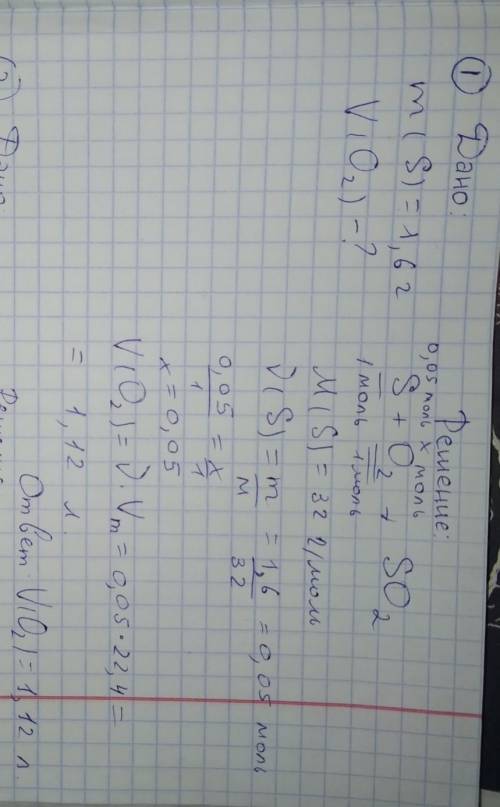 ① Дано:
m(S)=1,6г
V(O2)-?
Решение:
0,05 моль x моль
S + O2 → SO2
1 моль 1 моль
M(S)=32 г/моль
ν(S)=m/M=1,6/32=0,05 моль
0,05/1=x/1
x=0,05
V(O2)=ν·Vm=0,05·22,4=
= 1,12 л.
Ответ: V(O2)=1,12 л.
Дано: